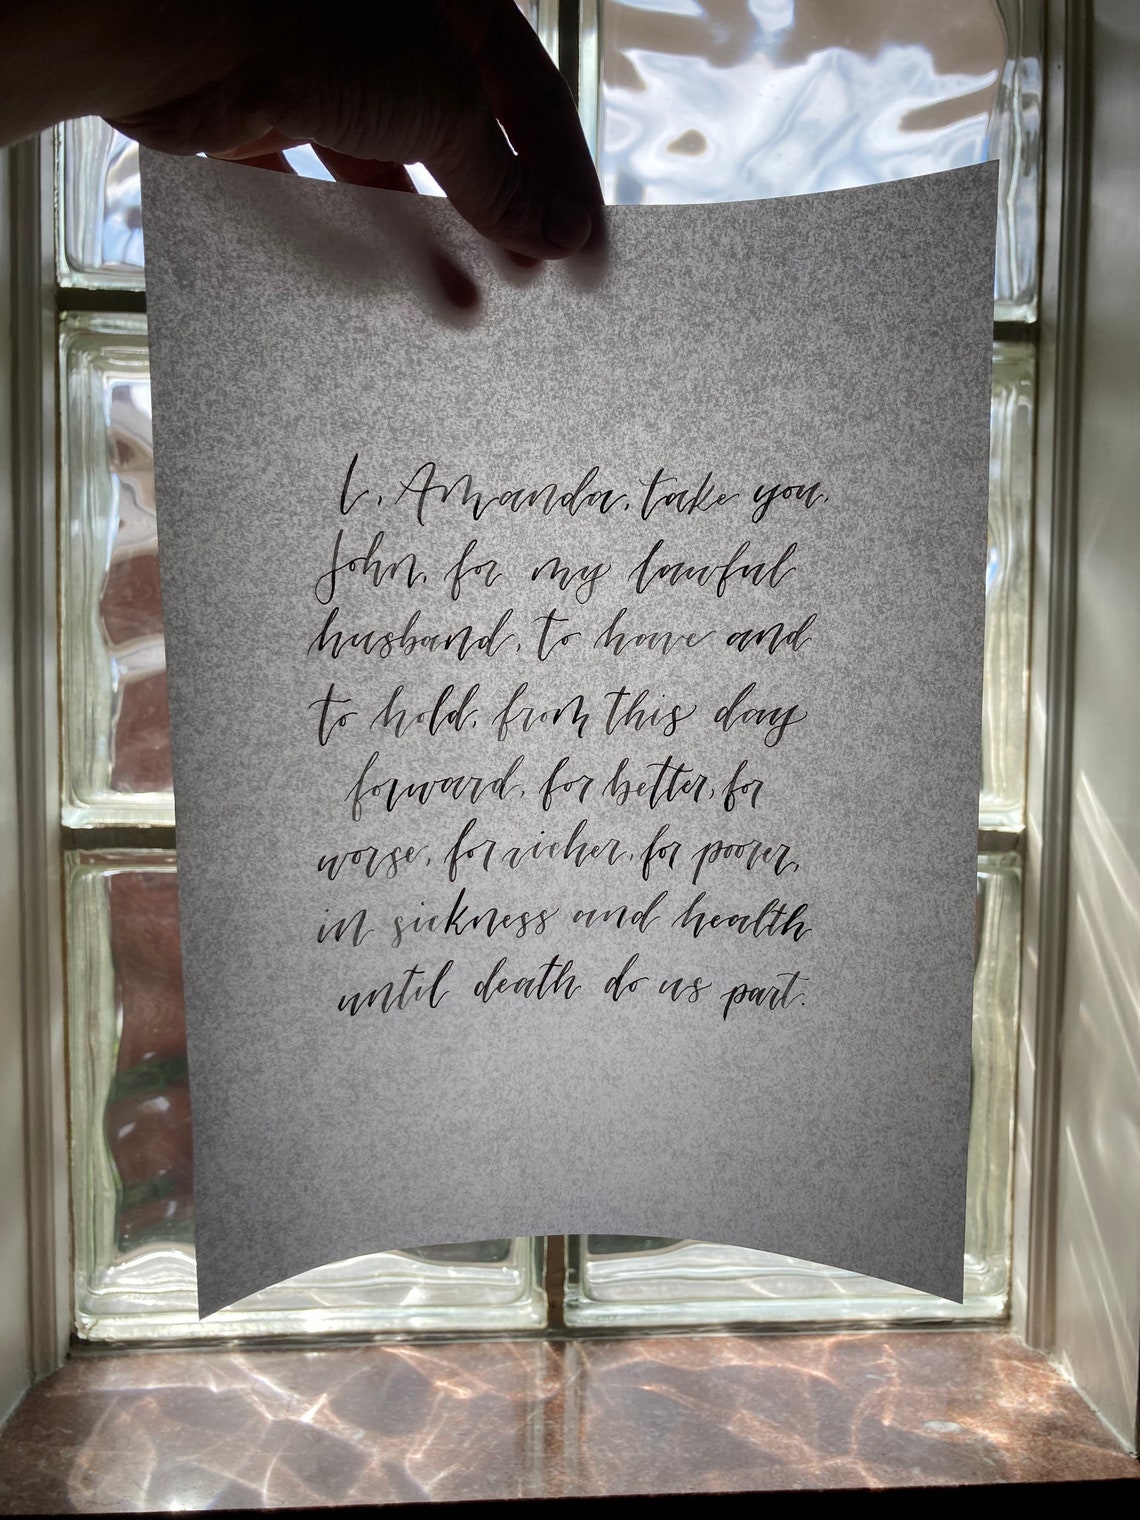 I, Amanda, take you,
John, for my lawful
husband, to have and
to hold, from this day
forward, for better, for
worse, for richer, for poorer,
in sickness and health
until death do us part.